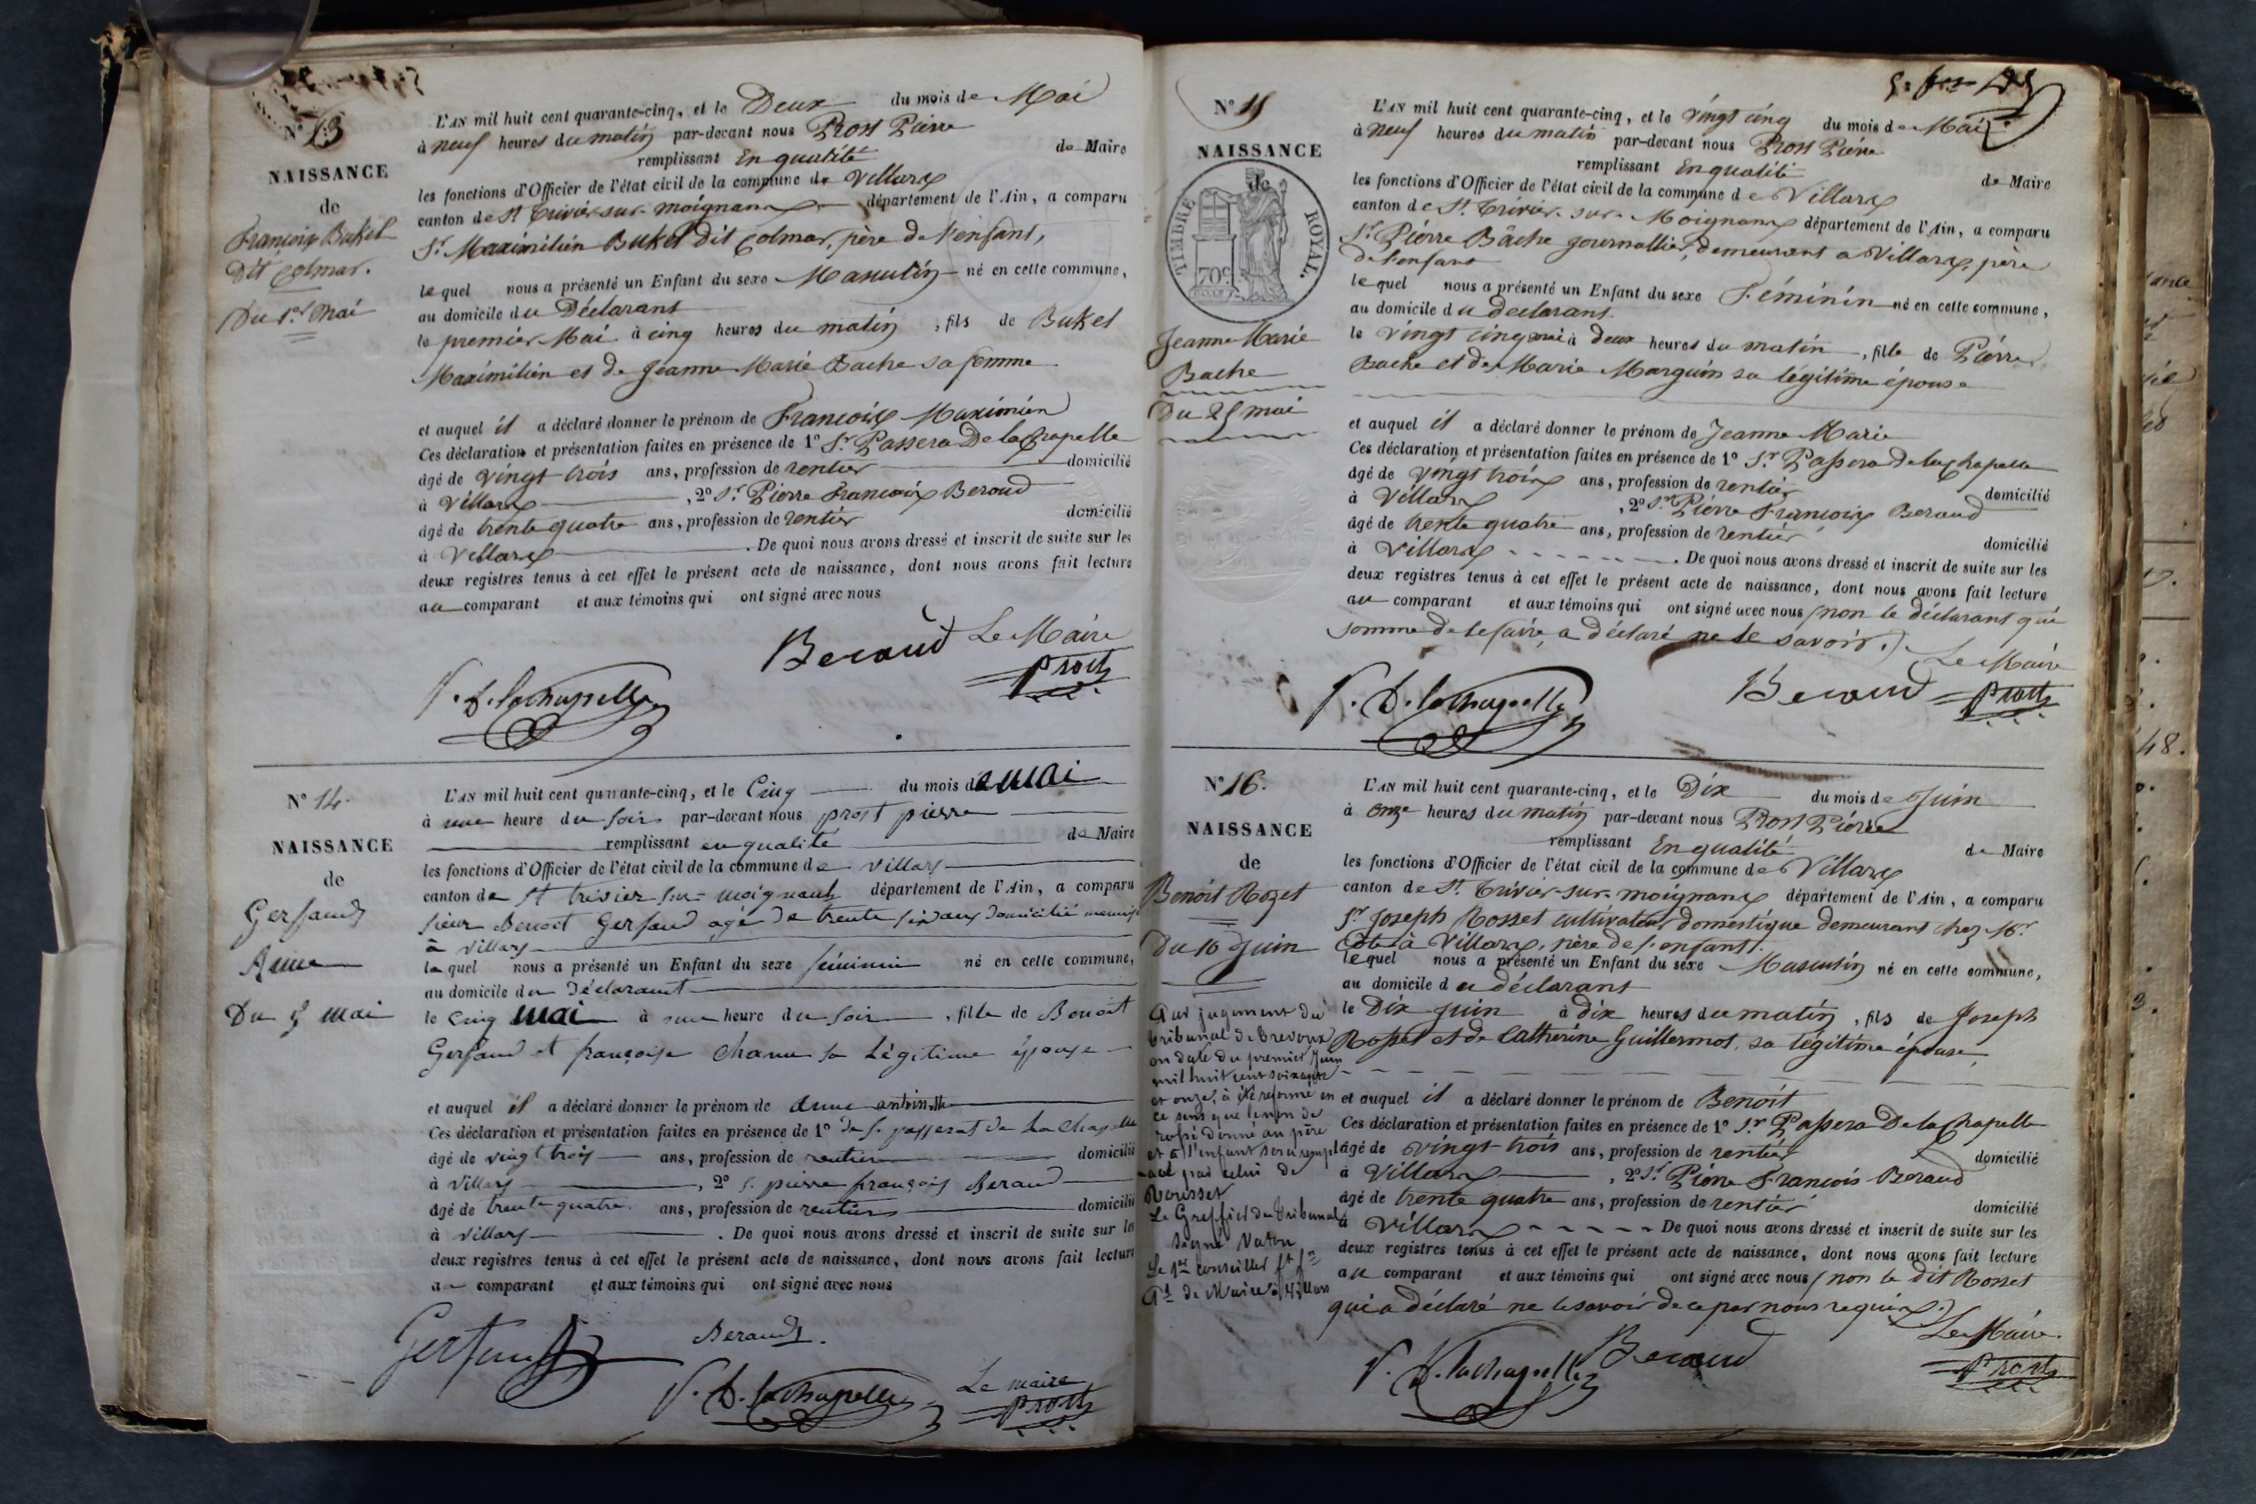 N° 13
NAISSANCE
de
François Bukel
dit Colmar.
Du 1er Mai
L'AN mil huit cent quarante-cinq, et le Deux du mois de Mai
à neuf heures du matin par-devant nous Prost Pierre
remplissant En qualité de Maire
les fonctions d'Officier de l'état civil de la commune de Villars
canton de St Trivier-sur-moignans département de l'Ain, a comparu
Sr. Maximilien Bukel dit Colmar, père de l'enfant,
lequel nous a présenté un Enfant du sexe Masculin né en cette commune,
au domicile du Déclarant
le premier Mai à cinq heures du matin, fils de Bukel
Maximilien et de Jeanne Marie Bache sa femme
et auquel il a déclaré donner le prénom de François Maximien
Ces déclaration et présentation faites en présence de 1° Sr. Passera De la Chapelle
âgé de vingt trois ans, profession de rentier domicilié
à Villars, 2° Sr. Pierre François Beroud
âgé de trente quatre ans, profession de rentier domicilié
à Villars. De quoi nous avons dressé et inscrit de suite sur les
deux registres tenus à cet effet le présent acte de naissance, dont nous avons fait lecture
au comparant et aux témoins qui ont signé avec nous
Beroud Le Maire
P. D. lachapelle Prost
N° 14
NAISSANCE
de
Gerfaud
Anne
Du 5 mai
L'AN mil huit cent quarante-cinq, et le Cinq du mois de mai
à une heure du soir par-devant nous prost pierre
remplissant en qualité de Maire
les fonctions d'Officier de l'état civil de la commune de villars
canton de st trivier sur moignans département de l'Ain, a comparu
sieur Benoit Gerfaud agé de trente six ans domicilié
à villars
lequel nous a présenté un Enfant du sexe féminin né en cette commune,
au domicile du Déclarant
le cinq mai à une heure du soir, fille de Benoit
Gerfaud et françoise Chanu sa légitime épouse
et auquel il a déclaré donner le prénom de anne antoinette
Ces déclaration et présentation faites en présence de 1° passerat de La Chapelle
âgé de vingt trois ans, profession de rentier domicilié
à villars, 2° S. pierre françois Beraud
âgé de trente quatre ans, profession de rentier domicilié
à villars. De quoi nous avons dressé et inscrit de suite sur les
deux registres tenus à cet effet le présent acte de naissance, dont nous avons fait lecture
au comparant et aux témoins qui ont signé avec nous
Gerfaud Beraud.
P. D. lachapelle Le maire
Prost
N° 15
NAISSANCE
de
TIMBRE ROYAL.
70c.
Jeanne Marie
Bache
Du 25 mai
L'AN mil huit cent quarante-cinq, et le vingt cinq du mois de Mai
à neuf heures du matin par-devant nous Prost Pierre
remplissant En qualité de Maire
les fonctions d'Officier de l'état civil de la commune de Villars
canton de St. Trivier-sur-Moignans département de l'Ain, a comparu
Sr. Pierre Bâche journallier, demeurant a Villars, père
de l'enfant
lequel nous a présenté un Enfant du sexe Féminin né en cette commune,
au domicile du declarant
le vingt cinq mai à deux heures du matin, fille de Pierre
Bache et de Marie Marguin sa légitime épouse
et auquel il a déclaré donner le prénom de Jeanne Marie
Ces déclaration et présentation faites en présence de 1° Sr. Passera de la Chapelle
âgé de vingt trois ans, profession de rentier domicilié
à Villars, 2° Sr. Pierre François Beraud
âgé de trente quatre ans, profession de rentier domicilié
à Villars. De quoi nous avons dressé et inscrit de suite sur les
deux registres tenus à cet effet le présent acte de naissance, dont nous avons fait lecture
au comparant et aux témoins qui ont signé avec nous (non le déclarant qui
somme de le faire, a déclaré ne le savoir.)
Le Maire
P. D. lachapelle Beroud Prost
N° 16.
NAISSANCE
de
Benoit Rozet
Du 10 Juin
Par jugement du
tribunal de Trevoux
en date du premier Juin
mil huit cent soixante
et onze, à été reformé en
ce sens que le nom de
rossé donné au père
et à l'enfant sera rempl
acé par celui de
Rousset
Le Greffier du tribunal
Signé Vaton
Le 1er conseiller ft fn
de Maire à Villars
L'AN mil huit cent quarante-cinq, et le Dix du mois de Juin
à onze heures du matin par-devant nous Prost Pierre
remplissant En qualité de Maire
les fonctions d'Officier de l'état civil de la commune de Villars
canton de St. Trivier-sur-moignans département de l'Ain, a comparu
Sr. Joseph Rosset cultivateur domestique demeurant chez Mr.
à Villars, père de l'enfant.
lequel nous a présenté un Enfant du sexe Masculin né en cette commune,
au domicile du déclarant
le Dix Juin à dix heures du matin, fils de Joseph
Rosset et de Catherine Guillermot, sa légitime épouse
et auquel il a déclaré donner le prénom de Benoit
Ces déclaration et présentation faites en présence de 1° Sr. Passera De la Chapelle
âgé de vingt-trois ans, profession de rentier domicilié
à Villars, 2° Sr. Pierre François Beraud
âgé de trente quatre ans, profession de rentier domicilié
à Villars De quoi nous avons dressé et inscrit de suite sur les
deux registres tenus à cet effet le présent acte de naissance, dont nous avons fait lecture
au comparant et aux témoins qui ont signé avec nous (non le dit Rosset
qui a déclaré ne le savoir de ce par nous requis.)
Le Maire.
P. D. lachapelle Beroud Prost